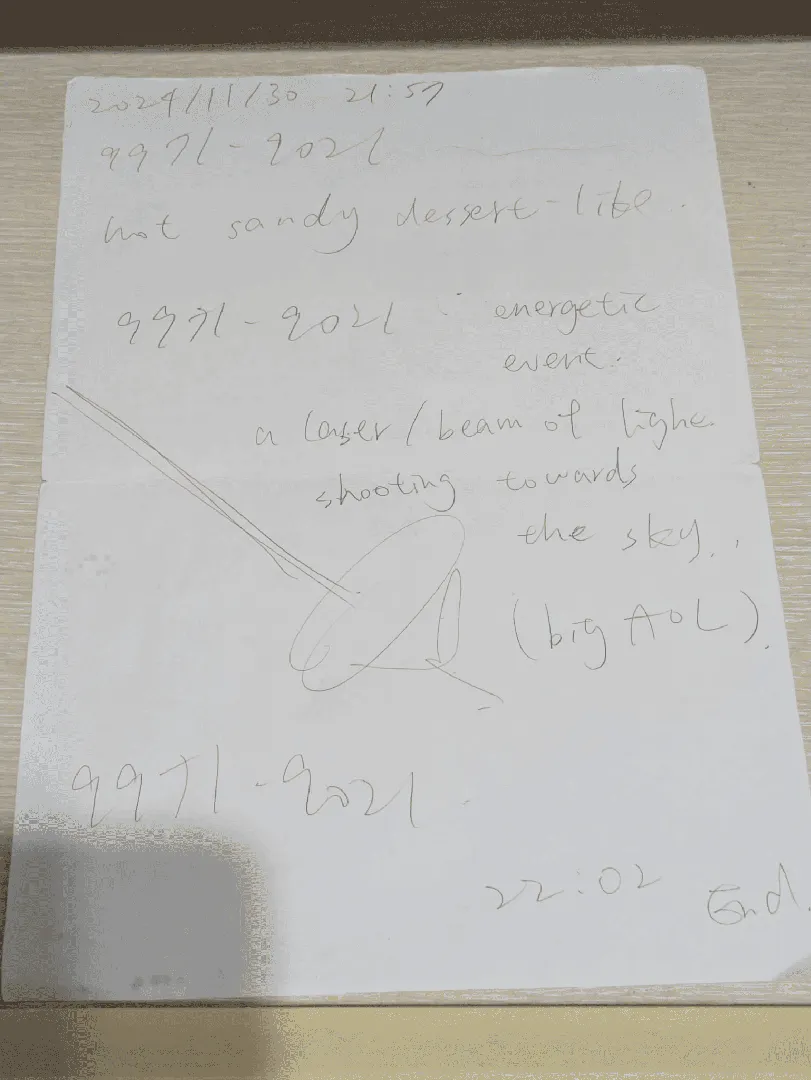 2024/11/30 21:57
9971-9021
hot sandy dessert-like.
9971-9021 : energetic
event.
a laser/beam of light
shooting towards
the sky..
(big AOL).
9971-9021.
22:02 End.